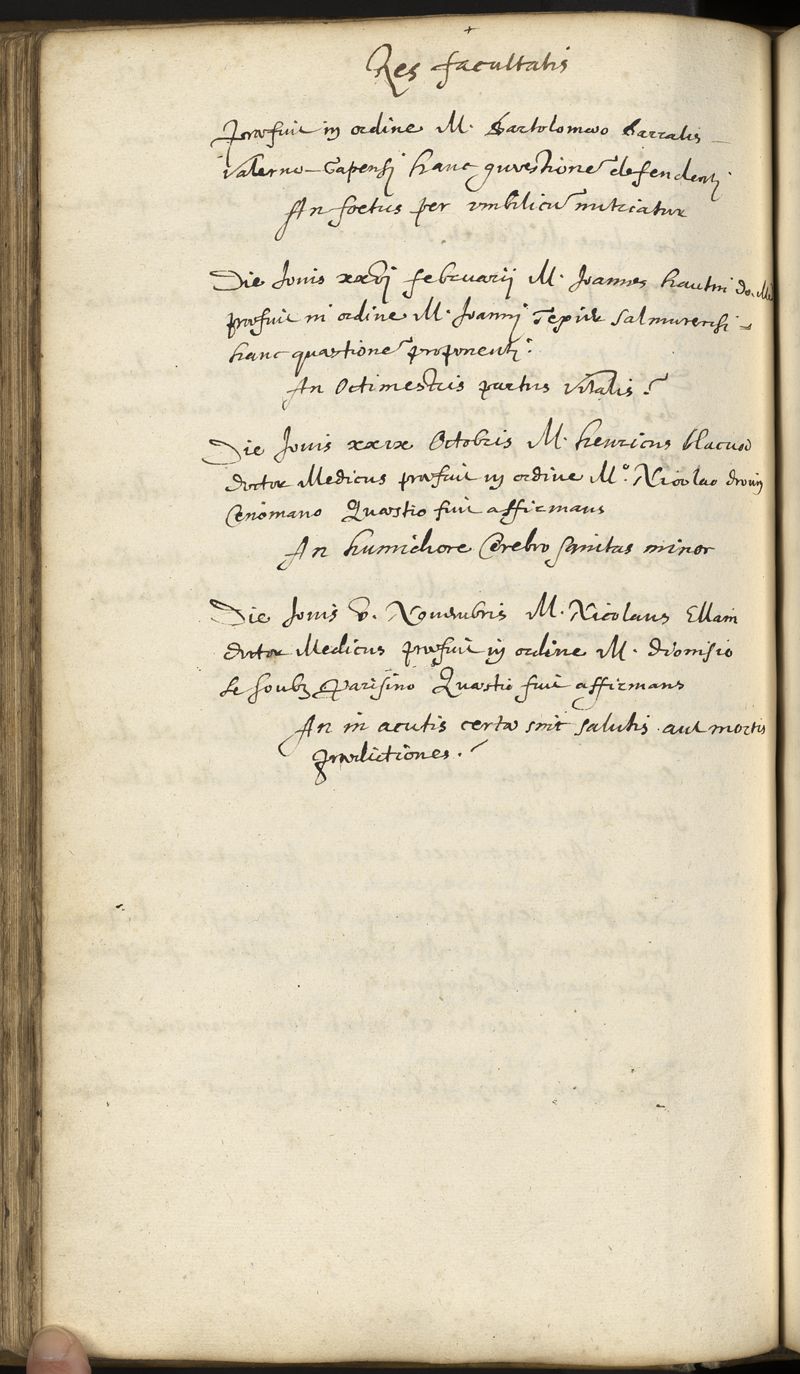 Res facultatis
Præfuit in ordine M. Bartolomæo Barralis
Valerno-Gapensi hanc quæstione͂ defendenti
An foetus per vmbilicu͂ nutriatur
Die Jouis xxvj februarij M. Joannes hautin do. Med
præfuit in ordine M. Joannj Texier Salmurensi
hanc quæstione͂ proponenti.
An Octimestris partus vitalis?
Die Jouis xxix Octobris M. henricus blacuod
doctor Medicus præfuit in ordine M.º Nicolao drouin
Cenomano Quæstio fuit affirmans
An humidiore Cerebro sanitas minor
Die Jouis v. Nouembris M. Nicolaus Ellain
doctor Medicus præfuit in ordine M. dionisio
le soubz Parisino Quæstio fuit affirmans
An in acutis certæ sint salutis aut mortis
prædictiones.